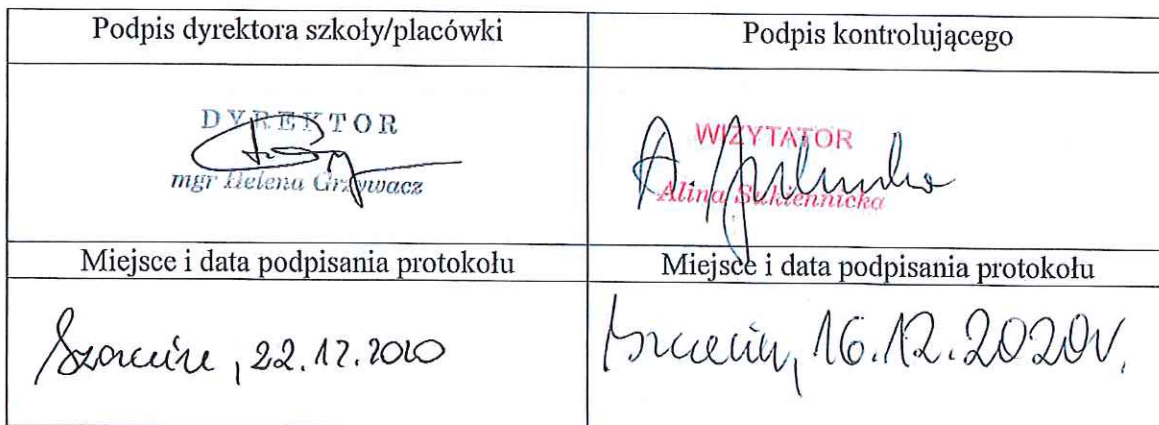 Podpis dyrektora szkoły/placówki
Podpis kontrolującego
DYREKTOR
mgr Helena Grzywacz
WIZYTATOR
Alina Sukiennicka
Miejsce i data podpisania protokołu
Miejsce i data podpisania protokołu
Szczecin, 22.12.2020
Szczecin, 16.12.2020r.